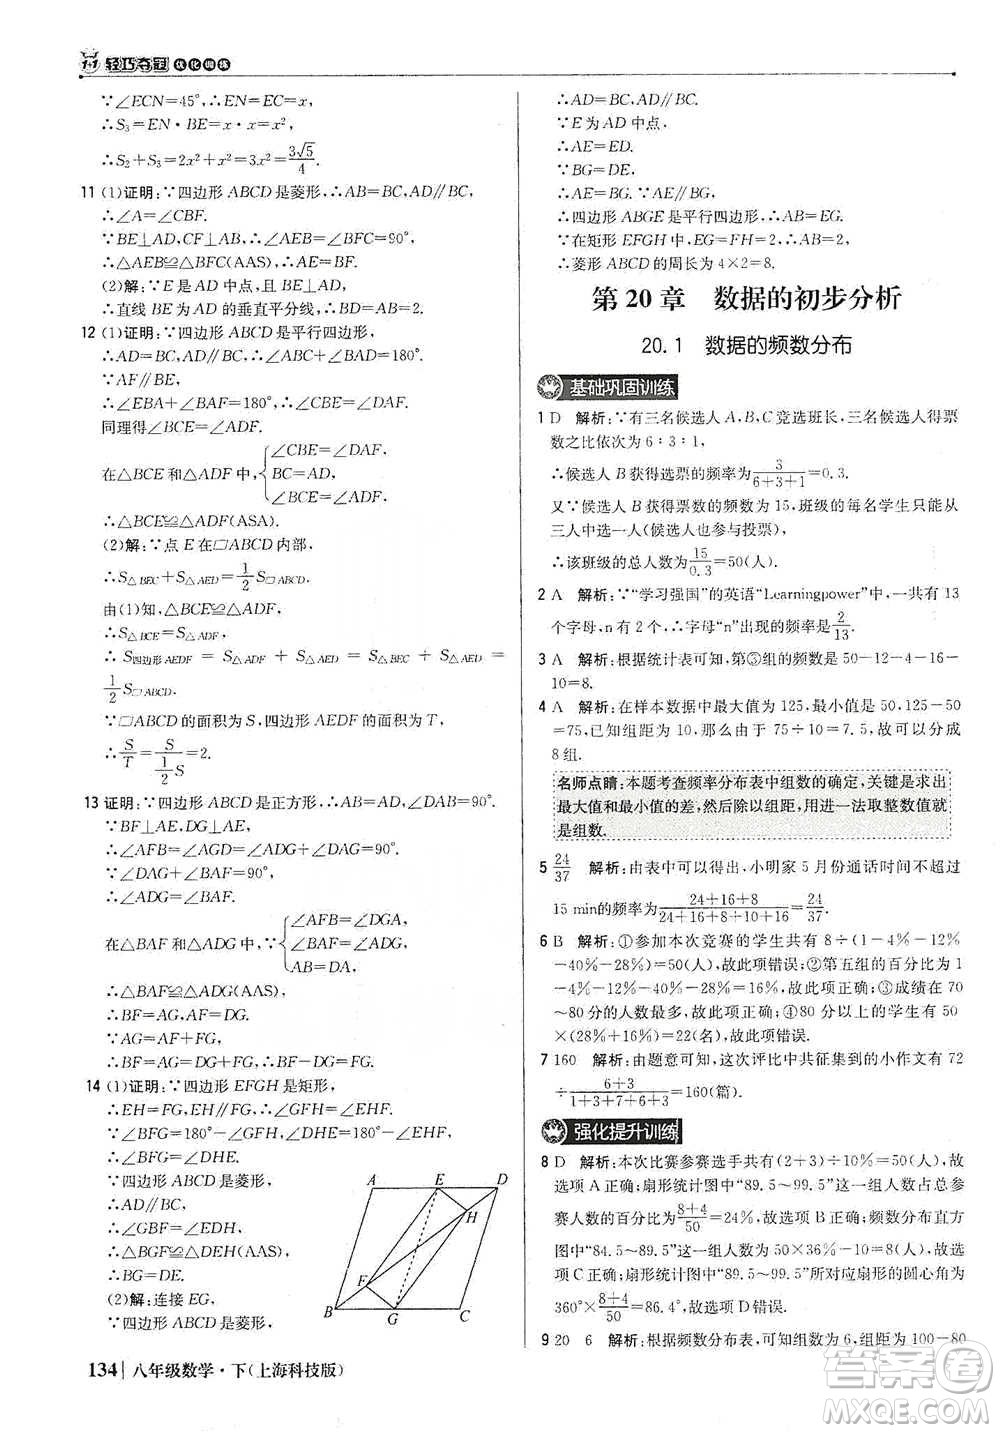 1+1 轻巧夺冠 优化训练
∵∠ECN=45°,∴EN=EC=x,
∴S₃=EN·BE=x·x=x²,
∴S₂+S₃=2x²+x²=3x²=3√5/4.
11 (1)证明:∵四边形ABCD是菱形,∴AB=BC,AD∥BC,
∴∠A=∠CBF.
∵BE⊥AD,CF⊥AB,∴∠AEB=∠BFC=90°,
∴△AEB≌△BFC(AAS),∴AE=BF.
(2)解:∵E是AD中点,且BE⊥AD,
∴直线BE为AD的垂直平分线,∴BD=AB=2.
12 (1)证明:∵四边形ABCD是平行四边形,
∴AD=BC,AD∥BC,∴∠ABC+∠BAD=180°.
∵AF∥BE,
∴∠EBA+∠BAF=180°,∴∠CBE=∠DAF.
同理得∠BCE=∠ADF.
在△BCE和△ADF中,{∠CBE=∠DAF, BC=AD, ∠BCE=∠ADF,
∴△BCE≌△ADF(ASA).
(2)解:∵点E在▱ABCD内部,
∴S△BEC+S△AED=1/2 S▱ABCD.
由(1)知,△BCE≌△ADF,
∴S△BCE=S△ADF,
∴S四边形AEDF = S△ADF + S△AED = S△BEC + S△AED =
1/2 S▱ABCD.
∵▱ABCD的面积为S,四边形AEDF的面积为T,
∴S/T=S/(1/2 S)=2.
13 证明:∵四边形ABCD是正方形,∴AB=AD,∠DAB=90°.
∵BF⊥AE,DG⊥AE,
∴∠AFB=∠AGD=∠DGF=90°.
∵∠DAG+∠BAF=90°,∠ADG+∠DAG=90°,
∴∠ADG=∠BAF.
在△BAF和△ADG中,∵{∠AFB=∠DGA, ∠BAF=∠ADG, AB=DA,
∴△BAF≌△ADG(AAS),
∴BF=AG,AF=DG.
∵AG=AF+FG,
∴BF=AG=DG+FG,∴BF-DG=FG.
14 (1)证明:∵四边形EFGH是矩形,
∴EH=FG,EH∥FG,∴∠GFH=∠EHF.
∵∠BFG=180°-∠GFH,∠DHE=180°-∠EHF,
∴∠BFG=∠DHE.
∵四边形ABCD是菱形,
∴AD∥BC,
∴∠GBF=∠EDH,
∴△BGF≌△DEH(AAS),
∴BG=DE.
(2)解:连接EG,
∵四边形ABCD是菱形,
A E D
H
F
B G C
134 八年级数学·下(上海科技版)
∴AD=BC,AD∥BC.
∵E为AD中点,
∴AE=ED.
∵BG=DE,
∴AE=BG.∵AE∥BG,
∴四边形ABGE是平行四边形,∴AB=EG.
∵在矩形EFGH中,EG=FH=2,∴AB=2,
∴菱形ABCD的周长为4×2=8.
第20章 数据的初步分析
20.1 数据的频数分布
基础巩固训练
1 D 解析:∵有三名候选人A,B,C竞选班长,三名候选人得票
数之比依次为6∶3∶1,
∴候选人B获得选票的频率为3/(6+3+1)=0.3.
又∵候选人B获得票数的频数为15,班级的每名学生只能从
三人中选一人(候选人也参与投票),
∴该班级的总人数为15/0.3=50(人).
2 A 解析:∵“学习强国”的英语“Learningpower”中,一共有13
个字母,n有2个,∴字母“n”出现的频率是2/13.
3 A 解析:根据统计表可知,第③组的频数是50-12-4-16-
10=8.
4 A 解析:在样本数据中最大值为125,最小值是50,125-50
=75,已知组距为10,那么由于75÷10=7.5,故可以分成
8组.
名师点睛:本题考查频率分布表中组数的确定,关键是求出
最大值和最小值的差,然后除以组距,用进一法取整数值就
是组数.
5 24/37 解析:由表中可以得出,小明家5月份通话时间不超过
15 min的频率为(24+16+8)/(24+16+8+10+16)=24/37.
6 B 解析:①参加本次竞赛的学生共有8÷(1-4%-12%
-40%-28%)=50(人),故此项错误;②第五组的百分比为1
-4%-12%-40%-28%=16%,故此项正确;③成绩在70
~80分的人数最多,故此项正确;④80分以上的学生有50
×(28%+16%)=22(名),故此项错误.
7 160 解析:由题意可知,这次评比中共征集到的小作文有72
÷(6+3)/(1+3+7+6+3)=160(篇).
强化提升训练
8 D 解析:本次比赛参赛选手共有(2+3)÷10%=50(人),故
选项A正确;扇形统计图中“89.5~99.5”这一组人数占总参
赛人数的百分比为(8+4)/50=24%,故选项B正确;频数分布直方
图中“84.5~89.5”这一组人数为50×36%-10=8(人),故选
项C正确;扇形统计图中“89.5~99.5”所对应扇形的圆心角为
360°×(8+4)/50=86.4°,故选项D错误.
9 20 6 解析:根据频数分布表,可知组数为6,组距为100-80
答案圈
MXQE.COM